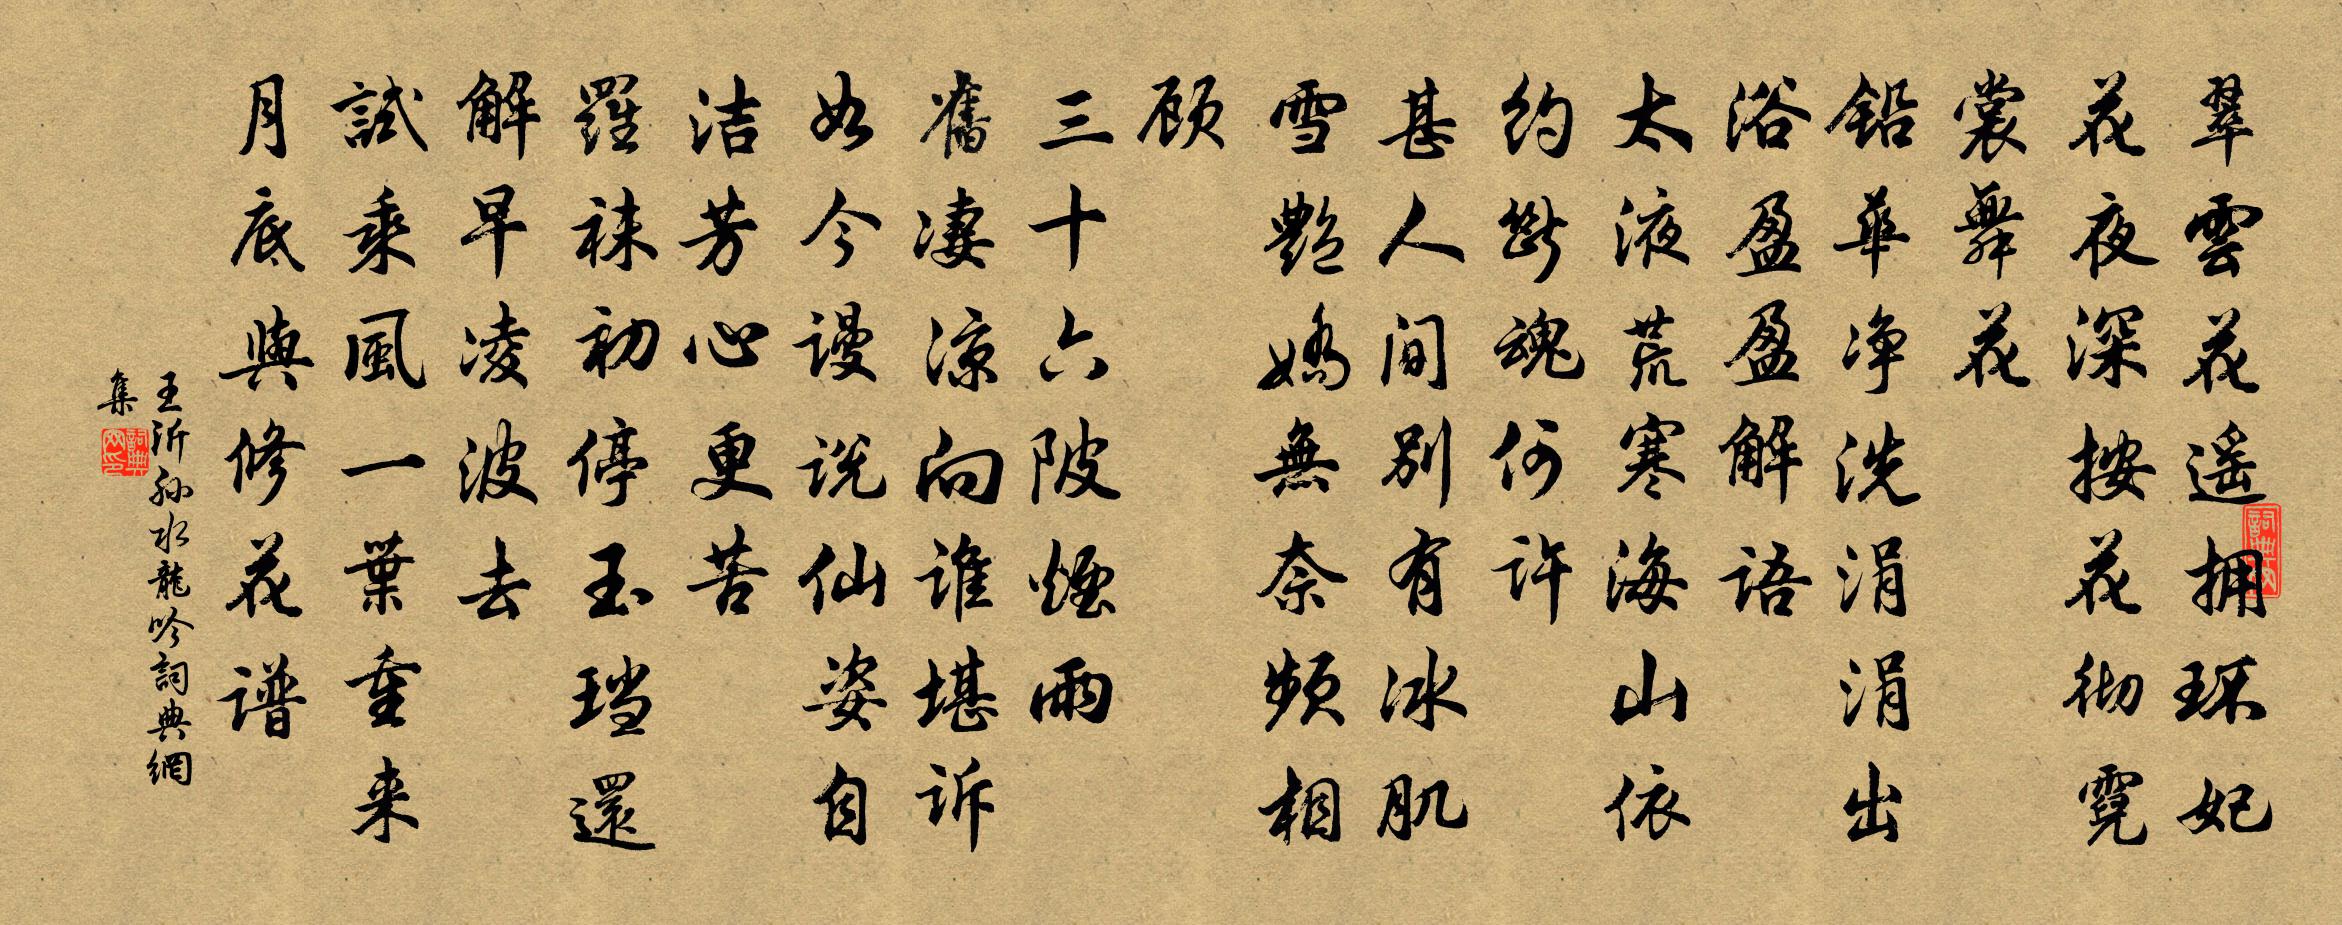 翠雲花遥拥环妃
花夜深按花彻霓
裳舞花
铅華净洗涓涓出
浴盈盈解语
太液荒寒海山依
约斷魂何许
甚人间别有冰肌
雪艷嬌無奈频相
顾
三十六陂煙雨
舊凄凉向谁堪诉
如今谩说仙姿自
洁芳心更苦
羅袜初停玉珰還
解早凌波去
試乘風一葉重来
月底與修花谱
王沂孙水龍吟詞典網
集
詞典网印
詞典网